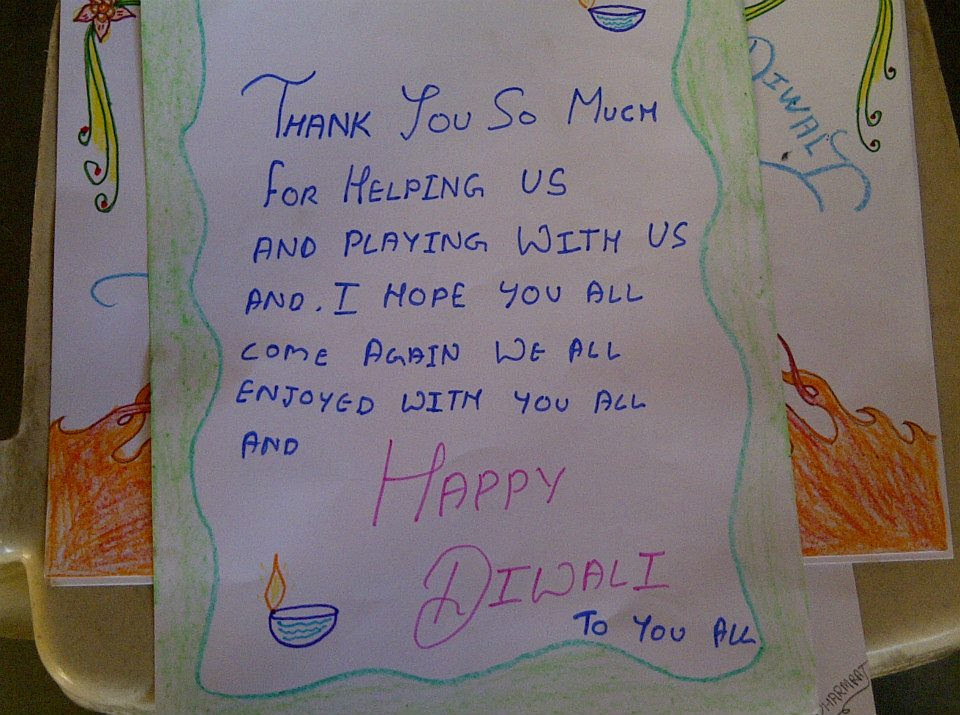 THANK YOU SO MUCH
FOR HELPING US
AND PLAYING WITH US
AND. I HOPE YOU ALL
COME AGAIN WE ALL
ENJOYED WITH YOU ALL
AND
HAPPY
DIWALI
TO YOU ALL
DIWALI